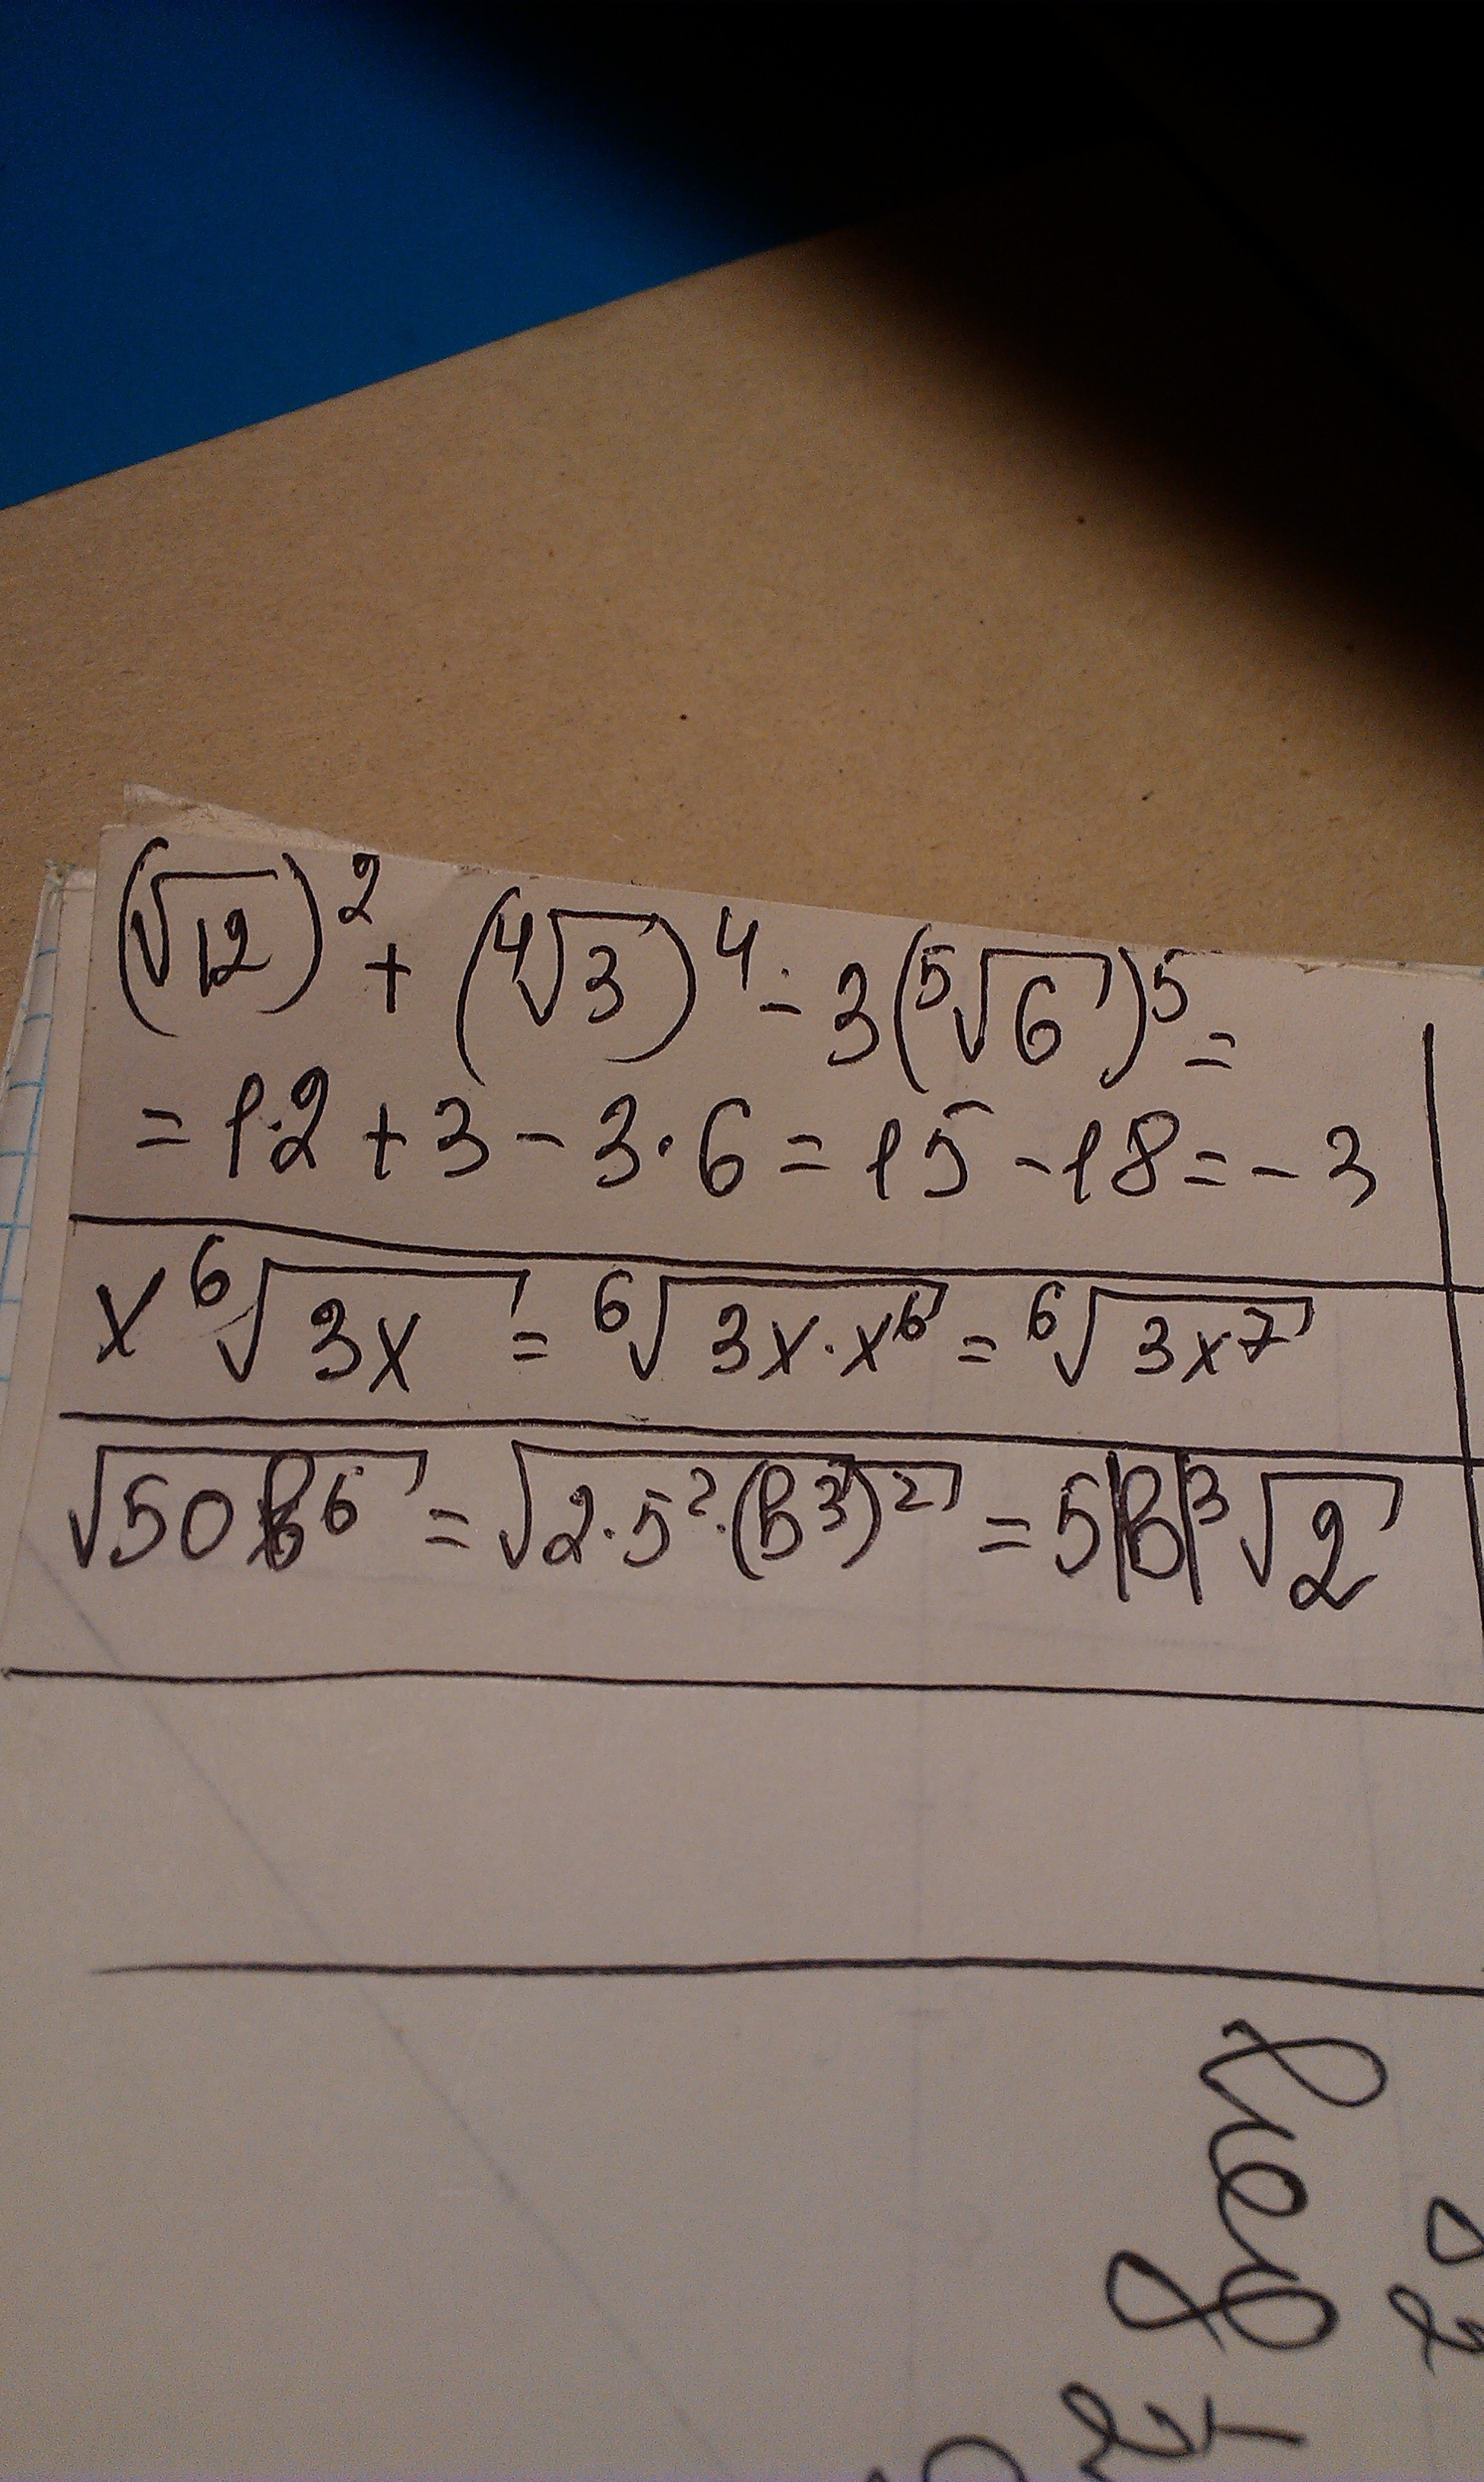 (√12)² + (⁴√3)⁴ - 3(⁵√6)⁵ =
= 12 + 3 - 3·6 = 15 - 18 = -3
x ⁶√3x = ⁶√3x·x⁶ = ⁶√3x⁷
√50b⁶ = √2·5²·(b³)² = 5|b|³√2